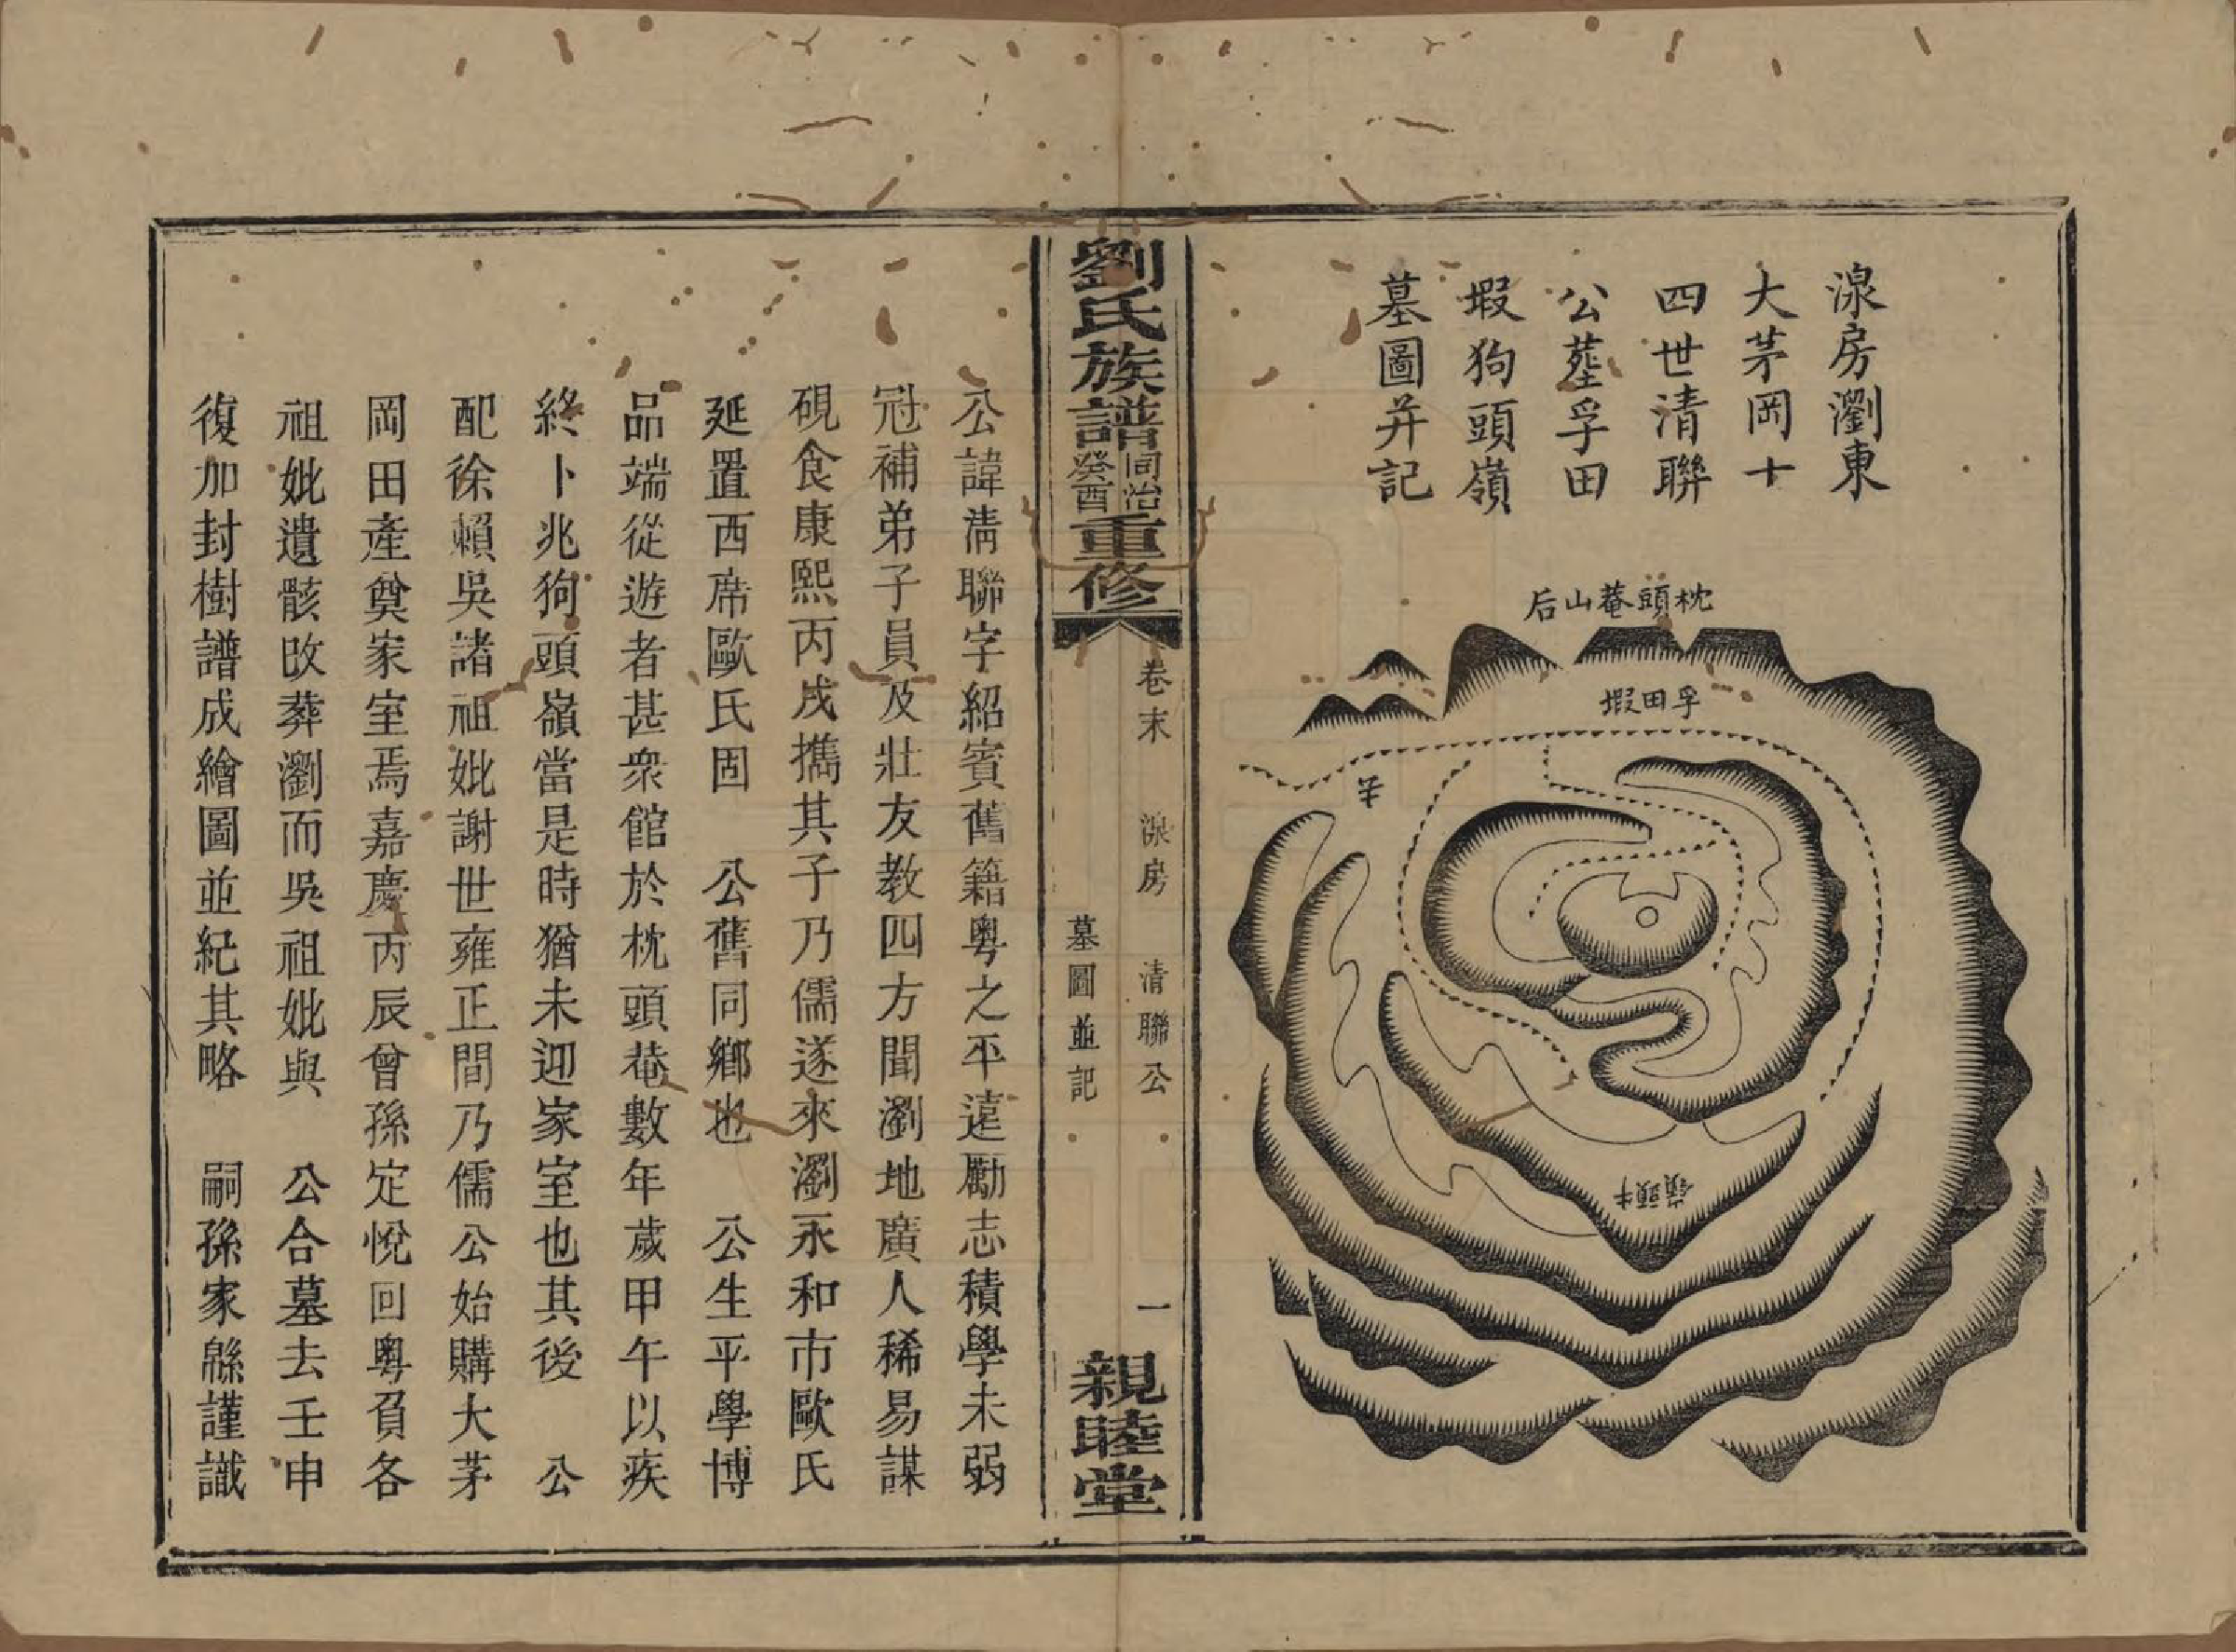 湶房瀏東
大茅岡十
四世清聯
公塟孚田
塅狗頭嶺
墓圖并記
枕頭菴山后
孚田塅
牛
牛頭嶺
劉氏族譜
同治
癸酉
重修
卷末
湶房
清聯公
墓圖並記
一
親睦堂
公諱淸聯字紹賓舊籍粵之平遠勵志積學未弱
冠補弟子員及壯友教四方聞瀏地廣人稀易謀
硯食康熙丙戌攜其子乃儒遂來瀏永和市歐氏
延置西席歐氏固 公舊同鄉也 公生平學博
品端從遊者甚衆館於枕頭菴數年歲甲午以疾
終卜兆狗頭嶺當是時猶未迎家室也其後 公
配徐賴吳諸祖妣謝世雍正間乃儒公始購大茅
岡田產奠家室焉嘉慶丙辰曾孫定悅回粵負各
祖妣遺骸改葬瀏而吳祖妣與 公合墓去壬申
復加封樹譜成繪圖並紀其略 嗣孫家緜謹識